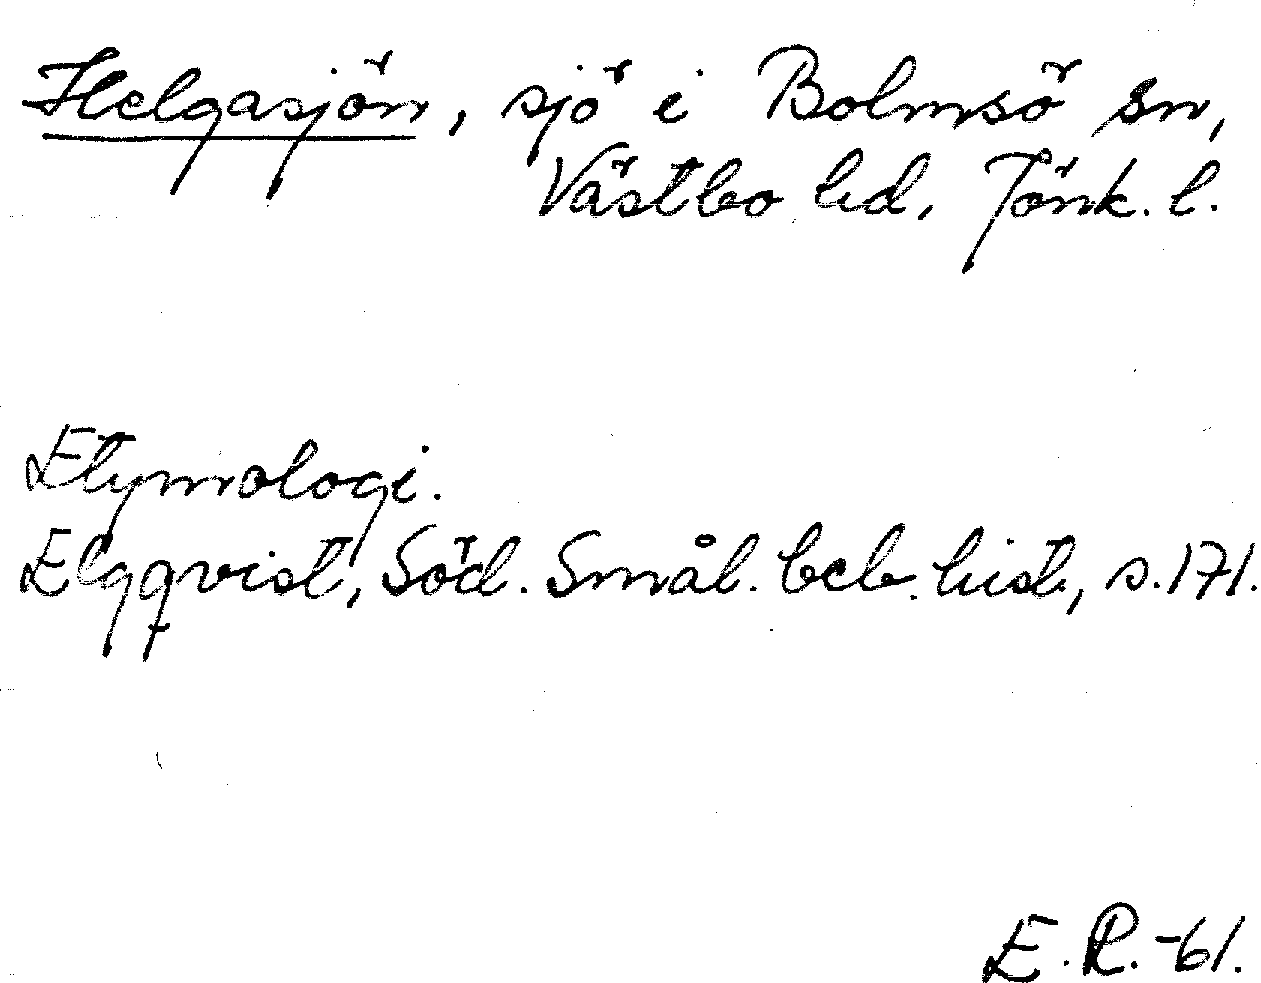 Helgasjön, sjö i Bolmsö sn,
Västbo hd, Jönk. l.
Etymologi.
Elgqvist, Söd. Smål. beb. hist., s. 171.
E. R. -61.